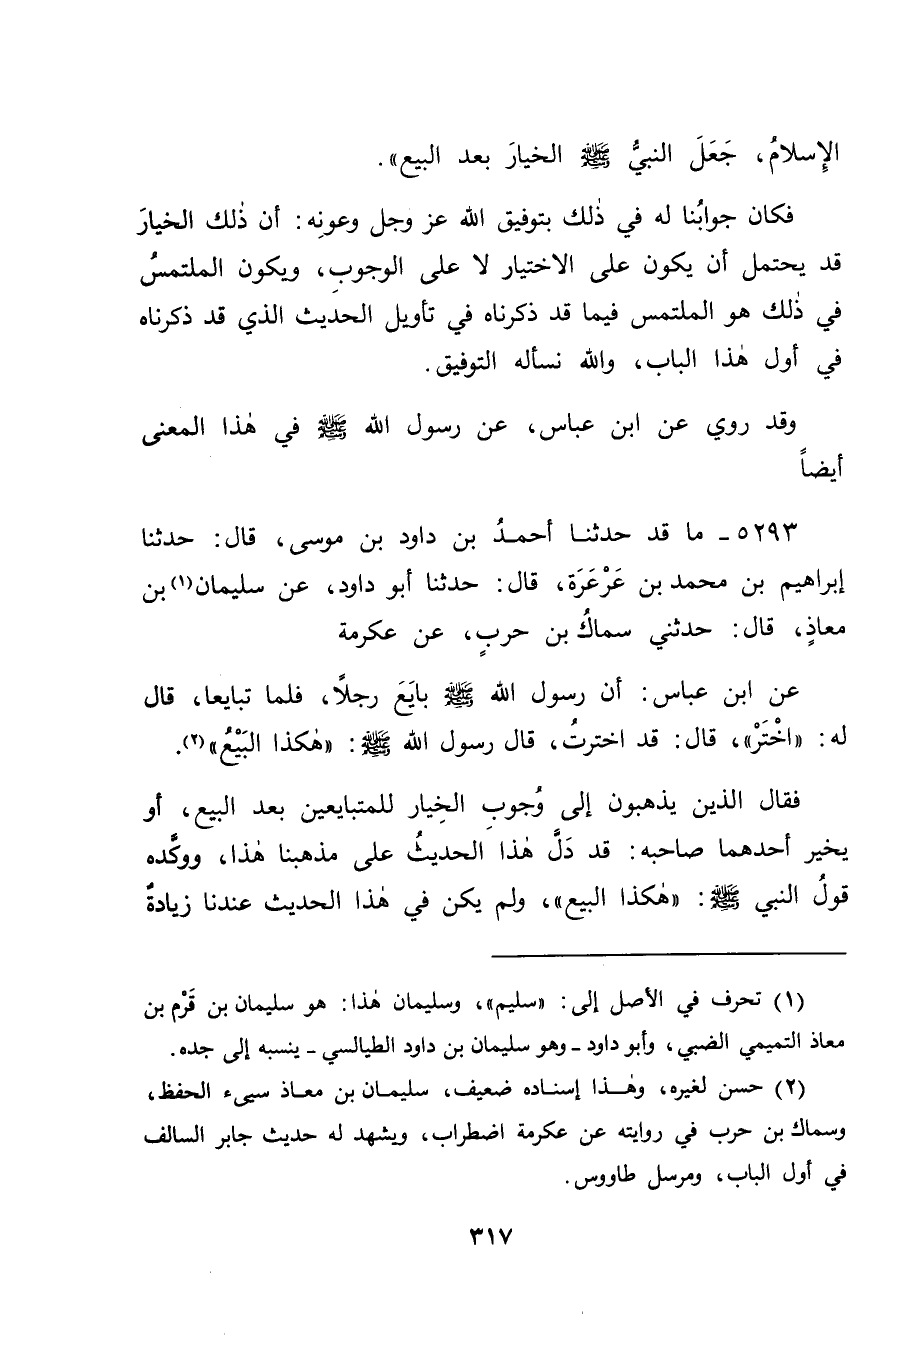 الإِسلامُ، جَعَلَ النبيُّ ﷺ الخيارَ بعد البيع».
فكان جوابُنا له في ذٰلك بتوفيق الله عز وجل وعونِه: أن ذٰلك الخيارَ
قد يحتمل أن يكون على الاختيار لا على الوجوبِ، ويكون الملتمسُ
في ذٰلك هو الملتمس فيما قد ذكرناه في تأويل الحديث الذي قد ذكرناه
في أول هٰذا الباب، والله نسأله التوفيق.
وقد روي عن ابن عباس، عن رسول الله ﷺ في هٰذا المعنى
أيضاً
٥٢٩٣ - ما قد حدثنا أحمدُ بن داود بن موسى، قال: حدثنا
إبراهيم بن محمد بن عَرْعَرَة، قال: حدثنا أبو داود، عن سليمان(١) بن
معاذٍ، قال: حدثني سماكُ بن حربٍ، عن عكرمة
عن ابن عباس: أن رسول الله ﷺ بايَعَ رجلاً، فلما تبايعا، قال
له: «اخْتَرْ»، قال: قد اخترتُ، قال رسول الله ﷺ: «هٰكذا البَيْعُ»(٢).
فقال الذين يذهبون إلى وُجوبِ الخِيار للمتبايعين بعد البيع، أو
يخير أحدهما صاحبه: قد دَلَّ هٰذا الحديثُ على مذهبنا هٰذا، ووكَّده
قولُ النبي ﷺ: «هٰكذا البيع»، ولم يكن في هٰذا الحديث عندنا زيادةٌ
(١) تحرف في الأصل إلى: «سليم»، وسليمان هٰذا: هو سليمان بن قَرْم بن
معاذ التميمي الضبي، وأبو داود - وهو سليمان بن داود الطيالسي - ينسبه إلى جده.
(٢) حسن لغيره، وهٰذا إسناده ضعيف، سليمان بن معاذ سيىء الحفظ،
وسماك بن حرب في روايته عن عكرمة اضطراب، ويشهد له حديث جابر السالف
في أول الباب، ومرسل طاووس.
٣١٧